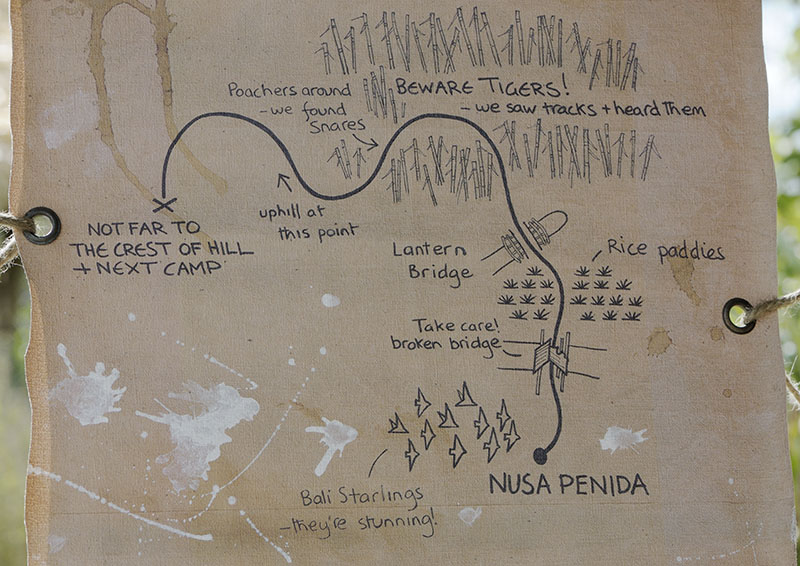 BEWARE TIGERS!
- we saw tracks + heard Them
Poachers around
- we found
Snares
uphill at
this point
NOT FAR TO
THE CREST OF HILL
+ NEXT 'CAMP'
Lantern
Bridge
Rice paddies
Take care!
broken bridge
NUSA PENIDA
Bali Starlings
- they're stunning!